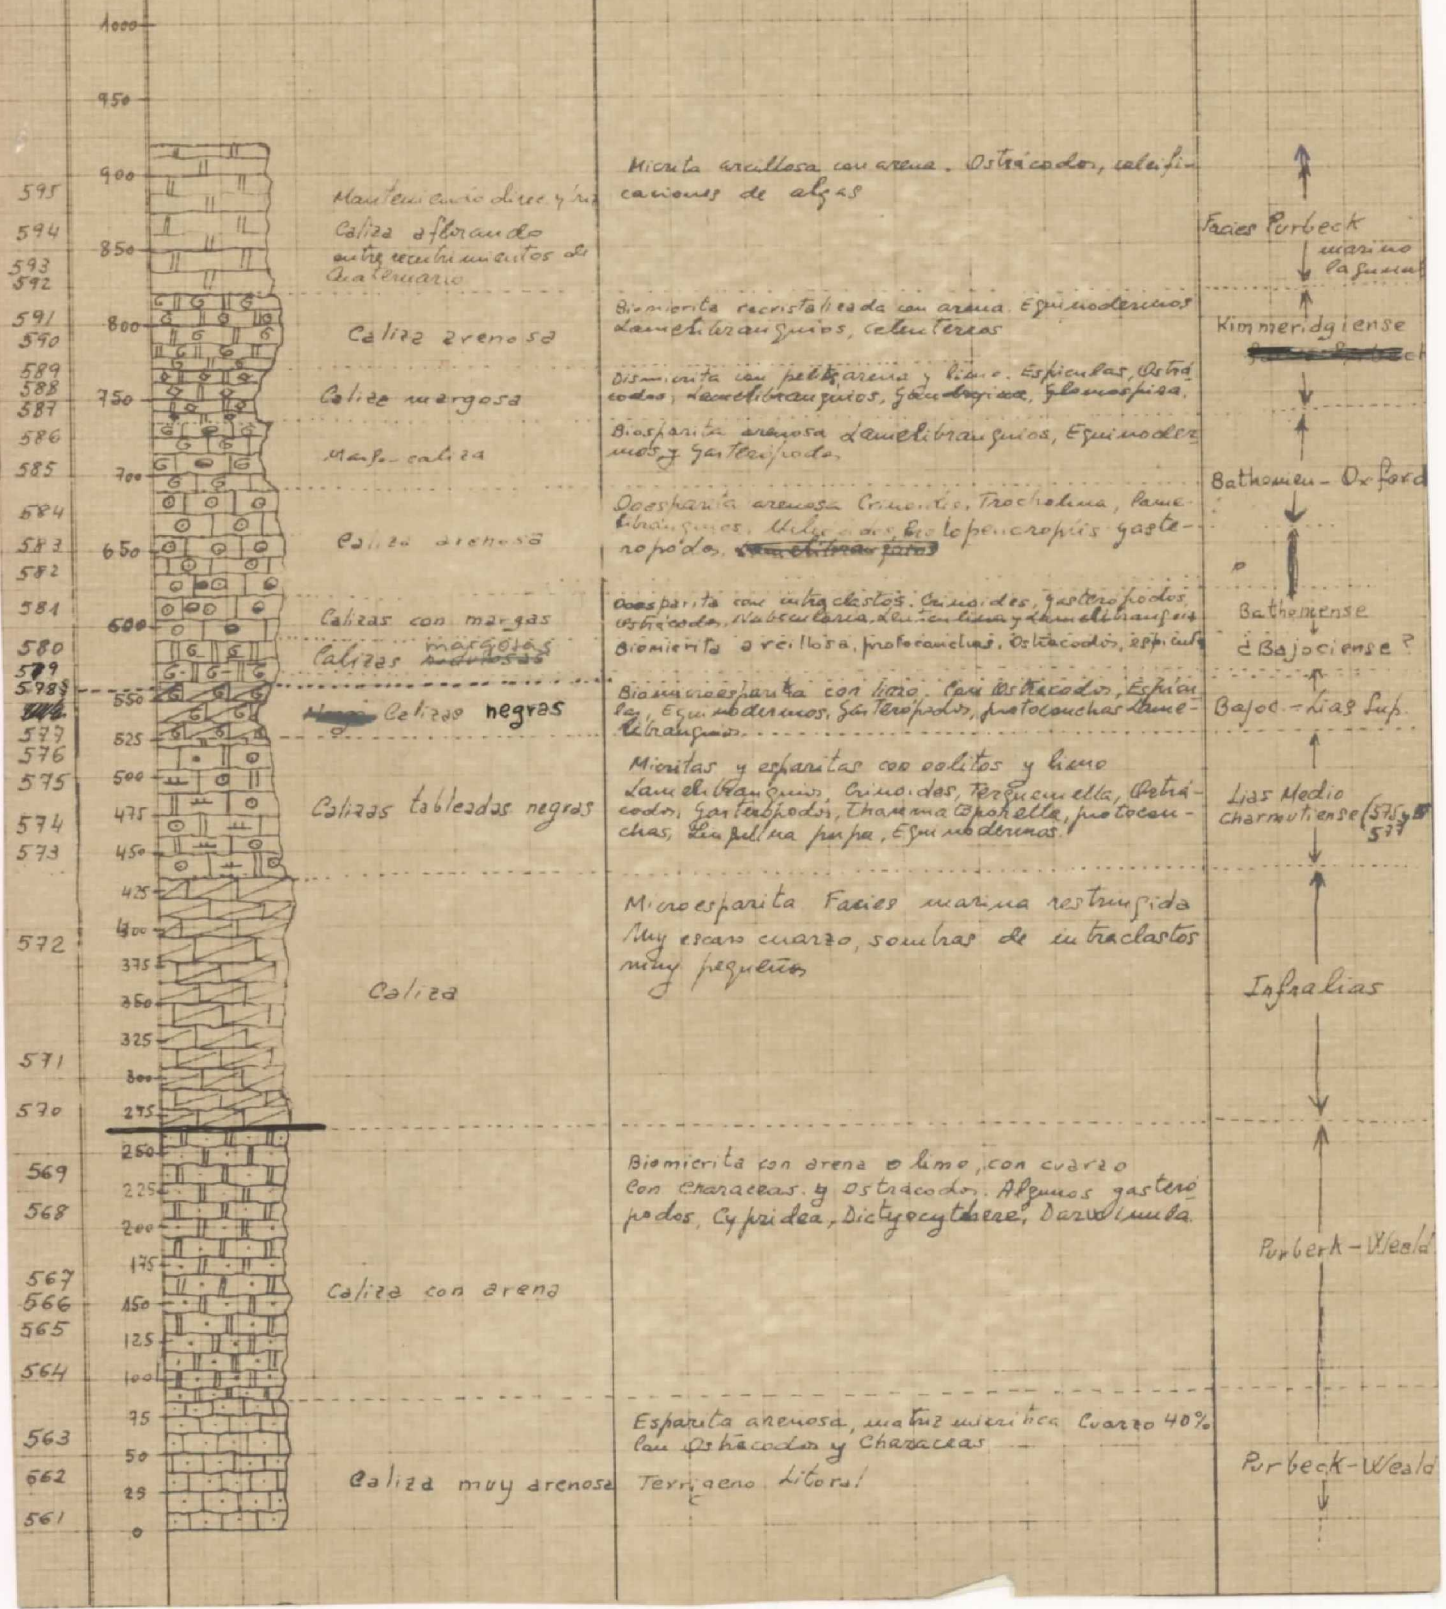 1000
950
900
850
800
750
700
650
600
550
525
500
475
450
425
400
375
350
325
300
275
250
225
200
175
150
125
100
75
50
25
0
595
594
593
592
591
590
589
588
587
586
585
584
583
582
581
580
579
578
577
576
575
574
573
572
571
570
569
568
567
566
565
564
563
562
561
Manteniendo direc. y
Caliza aflorando
entre recubrimientos de
Cuaternario
Caliza arenosa
Caliza margosa
Margo-caliza
Caliza arenosa
Calizas con margas
margosas
Calizas
Calizas negras
Calizas tableadas negras
Caliza
Caliza con arena
Caliza muy arenosa
Micrita arcillosa con arena. Ostrácodos, calcifi-
caciones de algas
Biomicrita recristalizada con arena. Equinodermos
Lamelibranquios, celenterios
Dismicrita con pelets, arena y limo. Espículas, Ostrá-
codos, Lamelibranquios, Gaudryina, Glomospira.
Biosparita arenosa Lamelibranquios, Equinoder
mos, y Gasterópodos
Ooesparita arenosa Crinoides, Trocholina, Lame-
libranquios, gaste-
ropódos,
Ooesparita con intraclastos. Crinoides, gasterópodos,
ostrácodos, Nubecularia, Lenticulina y Lamelibranquios
Biomicrita arcillosa, protoconchas, Ostracodos, espicula
Biomicroesparita con limo. Con Ostracodos, Espícu-
las, Equinodermos, Gasterópodos, protoconchas Lame-
libranquios.
Micritas y esparitas con oolitos y limo
Lamelibranquios, Crinoides, Terquemella, Ostrá-
codos, Gasterópodos, Thaumatoporella, protocon-
chas, Lingulina pupa, Equinodermos.
Microesparita Facies marina restringida
Muy escaso cuarzo, sombras de intraclastos
muy pequeños
Biomicrita con arena o limo, con cuarzo
Con Characeas y Ostrácodos. Algunos gasteró
podos, Cypridea, Dictyocythere, Darwinula.
Esparita arenosa, matriz micritica Cuarzo 40%
Con Ostrácodos y Characeas
Terrígeno Litoral
Facies Purbeck
marino
lagunal
Kimmeridgiense
Bathonien-Oxford
Bathoniense
¿Bajociense?
Bajoc.-Lias Sup.
Lias Medio
Charmutiense (575 y
577
Infralias
Purbeck-Weald
Purbeck-Weald